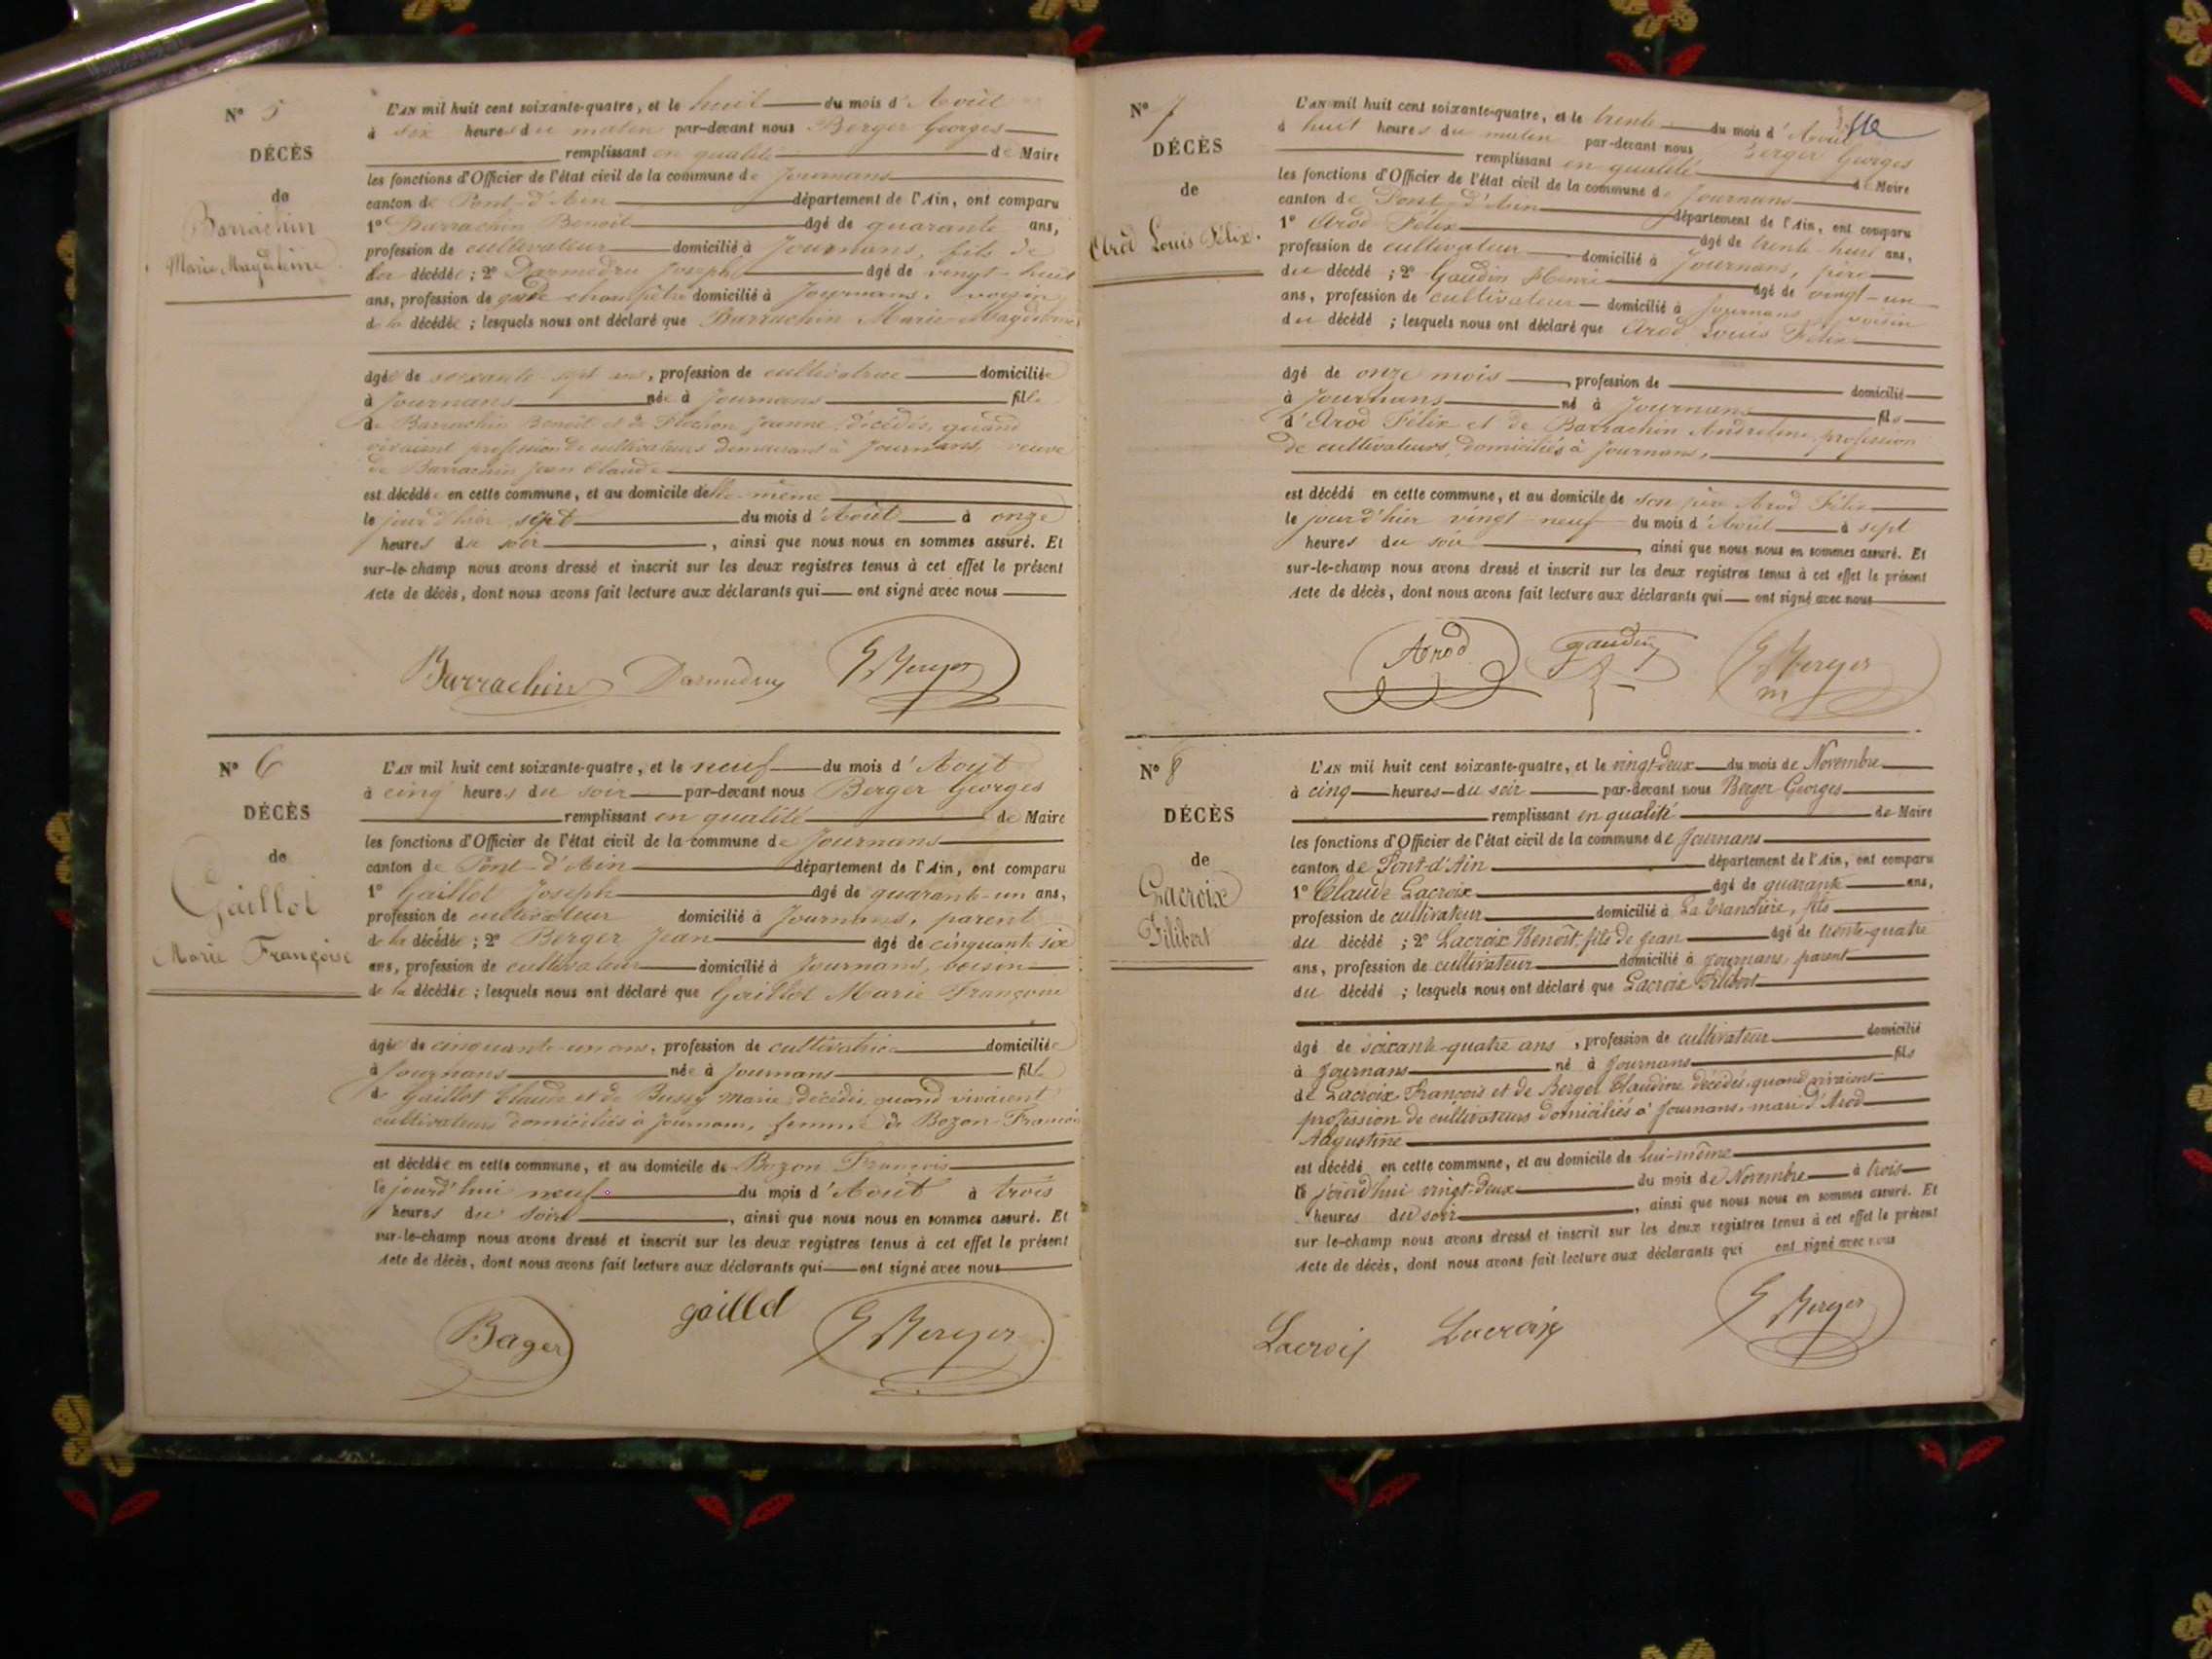 N° 5
DÉCÈS
de
Barrachin
Marie Magdeleine
L'AN mil huit cent soixante-quatre, et le huit du mois d'Août
à six heures du matin par-devant nous Berger Georges
remplissant en qualité de Maire
les fonctions d'Officier de l'état civil de la commune de Journans
canton de Pont-d'Ain département de l'Ain, ont comparu
1° Barrachin Benoit âgé de quarante ans,
profession de cultivateur domicilié à Journans, fils de
la décédée ; 2° Darmedru Joseph âgé de vingt-huit
ans, profession de garde champêtre domicilié à Journans, voisin
de la décédée ; lesquels nous ont déclaré que Barrachin Marie Magdeleine
âgée de soixante-sept ans, profession de cultivatrice domiciliée
à Journans née à Journans fille
de Barrachin Benoit et de Flochon Jeanne, décédés, quand
vivaient profession de cultivateurs demeurant à Journans, veuve
de Barrachin Jean Claude
est décédée en cette commune, et au domicile d'elle-même
le jour d'hier sept du mois d'Août à onze
heures du soir, ainsi que nous nous en sommes assuré. Et
sur-le-champ nous avons dressé et inscrit sur les deux registres tenus à cet effet le présent
Acte de décès, dont nous avons fait lecture aux déclarants qui ont signé avec nous
Barrachin Darmedru G Berger
N° 6
DÉCÈS
de
Gaillot
Marie Françoise
L'AN mil huit cent soixante-quatre, et le neuf du mois d'Août
à cinq heures du soir par-devant nous Berger Georges
remplissant en qualité de Maire
les fonctions d'Officier de l'état civil de la commune de Journans
canton de Pont-d'Ain département de l'Ain, ont comparu
1° Gaillot Joseph âgé de quarante-un ans,
profession de cultivateur domicilié à Journans, parent
de la décédée ; 2° Berger Jean âgé de cinquante six
ans, profession de cultivateur domicilié à Journans, voisin
de la décédée ; lesquels nous ont déclaré que Gaillot Marie Françoise
âgée de cinquante-un ans, profession de cultivatrice domiciliée
à Journans née à Journans fille
de Gaillot Claude et de Bussy Marie, décédés, quand vivaient
cultivateurs domiciliés à Journans, femme de Bozon François
est décédée en cette commune, et au domicile de Bozon François
le jourd'hui neuf du mois d'Août à trois
heures du soir, ainsi que nous nous en sommes assuré. Et
sur-le-champ nous avons dressé et inscrit sur les deux registres tenus à cet effet le présent
Acte de décès, dont nous avons fait lecture aux déclarants qui ont signé avec nous
Bager gaillot G Berger
N° 7
DÉCÈS
de
Arod Louis Félix.
L'AN mil huit cent soixante-quatre, et le trente du mois d'Août
à huit heures du matin par-devant nous Berger Georges
remplissant en qualité de Maire
les fonctions d'Officier de l'état civil de la commune de Journans
canton de Pont-d'Ain département de l'Ain, ont comparu
1° Arod Félix âgé de trente-huit ans,
profession de cultivateur domicilié à Journans, père
du décédé ; 2° Gaudin Henri âgé de vingt-un
ans, profession de cultivateur domicilié à Journans, voisin
du décédé ; lesquels nous ont déclaré que Arod Louis Félix
âgé de onze mois, profession de domicilié
à Journans né à Journans fils
d'Arod Félix et de Barrachin Andréline, profession
de cultivateurs, domiciliés à Journans,
est décédé en cette commune, et au domicile de son père Arod Félix
le jour d'hier vingt-neuf du mois d'Août à sept
heures du soir, ainsi que nous nous en sommes assuré. Et
sur-le-champ nous avons dressé et inscrit sur les deux registres tenus à cet effet le présent
Acte de décès, dont nous avons fait lecture aux déclarants qui ont signé avec nous
Arod gaudin G Berger
m
N° 8
DÉCÈS
de
Lacroix
Filibert
L'AN mil huit cent soixante-quatre, et le vingt-deux du mois de Novembre
à cinq heures du soir par-devant nous Berger Georges
remplissant en qualité de Maire
les fonctions d'Officier de l'état civil de la commune de Journans
canton de Pont-d'Ain département de l'Ain, ont comparu
1° Claude Lacroix âgé de quarante ans,
profession de cultivateur domicilié à La Tranclière, fils
du décédé ; 2° Lacroix Benoît fils de Jean âgé de trente-quatre
ans, profession de cultivateur domicilié à Journans, parent
du décédé ; lesquels nous ont déclaré que Lacroix Filibert
âgé de soixante-quatre ans, profession de cultivateur domicilié
à Journans né à Journans fils
de Lacroix François et de Berger Claudine décédés, quand vivaient
profession de cultivateurs domiciliés à Journans, mari d'Arod
Augustine
est décédé en cette commune, et au domicile de lui-même
le jourd'hui vingt-deux du mois de Novembre à trois
heures du soir, ainsi que nous nous en sommes assuré. Et
sur le-champ nous avons dressé et inscrit sur les deux registres tenus à cet effet le présent
Acte de décès, dont nous avons fait lecture aux déclarants qui ont signé avec nous
Lacroix Lacroix G Berger